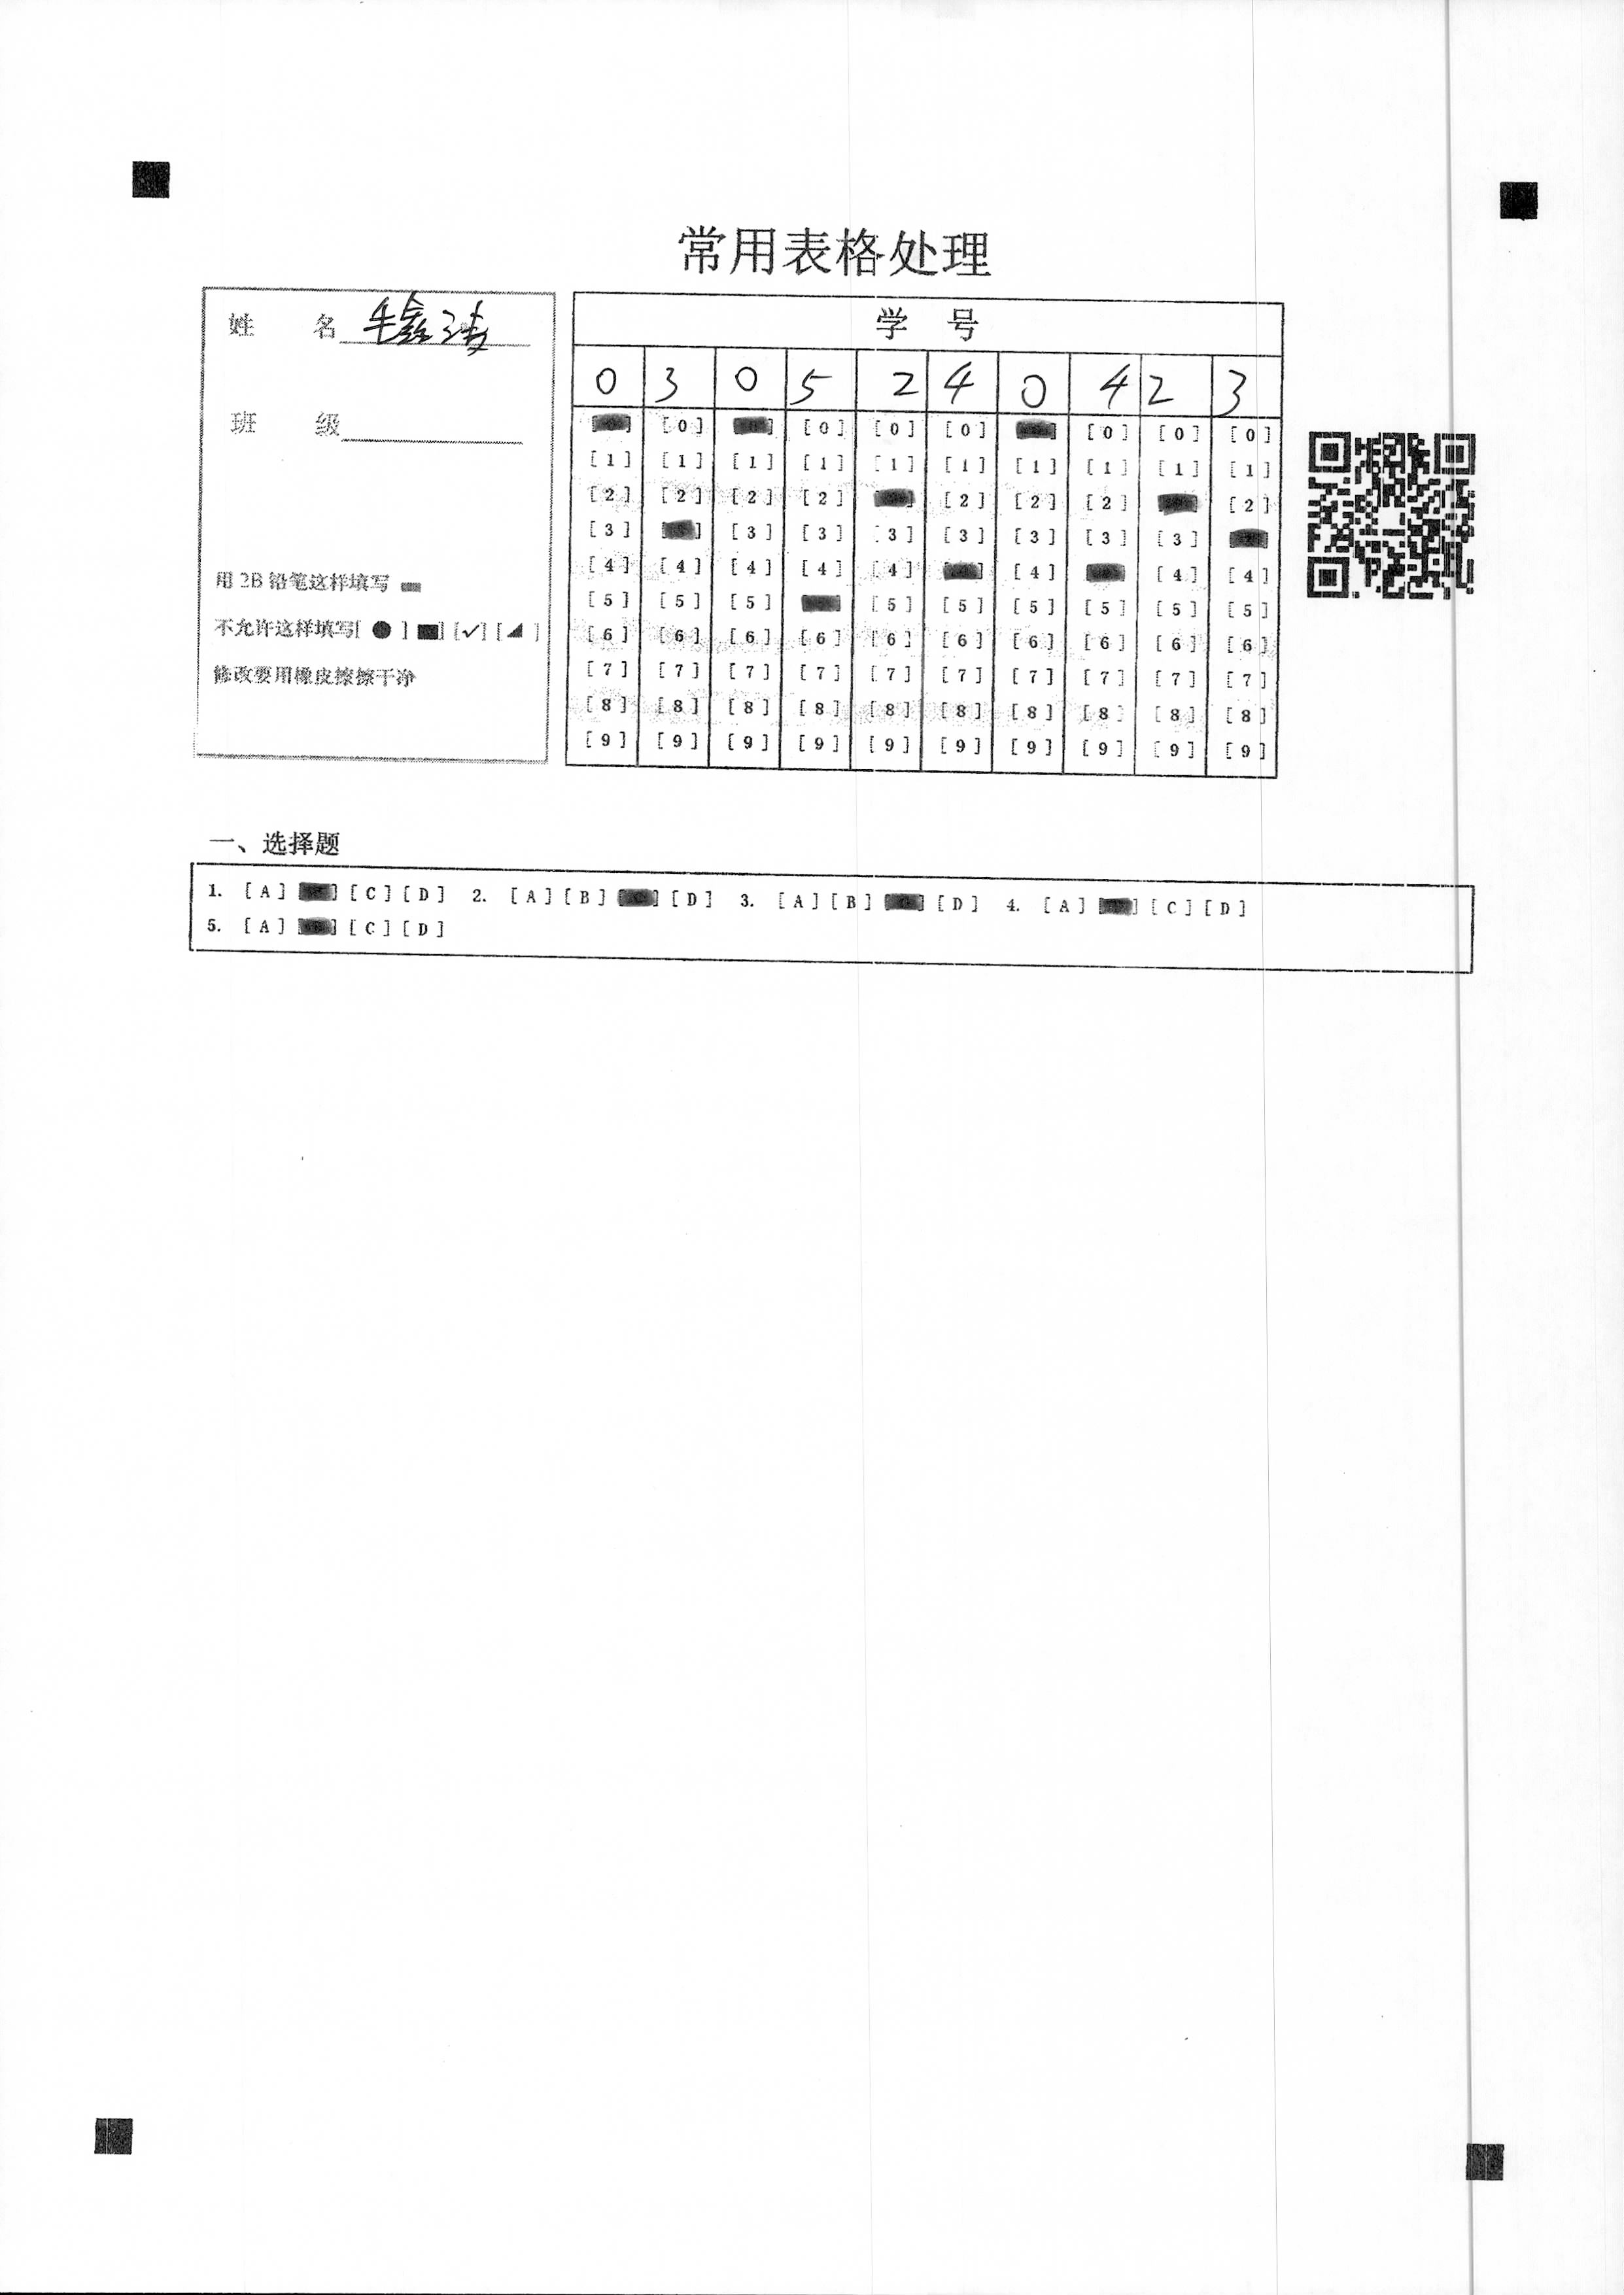 常用表格处理
姓 名
班 级
用 2B 铅笔这样填写
不允许这样填写[ ● ] ■] [✓] [◢ ]
修改要用橡皮擦擦干净
学 号
0 3 0 5 2 4 0 4 2 3
[0] [0] [0] [0] [0] [0] [0]
[1] [1] [1] [1] [1] [1] [1] [1] [1] [1]
[2] [2] [2] [2] [2] [2] [2] [2]
[3] [3] [3] [3] [3] [3] [3] [3]
[4] [4] [4] [4] [4] [4] [4] [4]
[5] [5] [5] [5] [5] [5] [5] [5] [5]
[6] [6] [6] [6] [6] [6] [6] [6] [6] [6]
[7] [7] [7] [7] [7] [7] [7] [7] [7] [7]
[8] [8] [8] [8] [8] [8] [8] [8] [8] [8]
[9] [9] [9] [9] [9] [9] [9] [9] [9] [9]
一、选择题
1. [A] [C] [D] 2. [A] [B] [D] 3. [A] [B] [D] 4. [A] [C] [D]
5. [A] [C] [D]